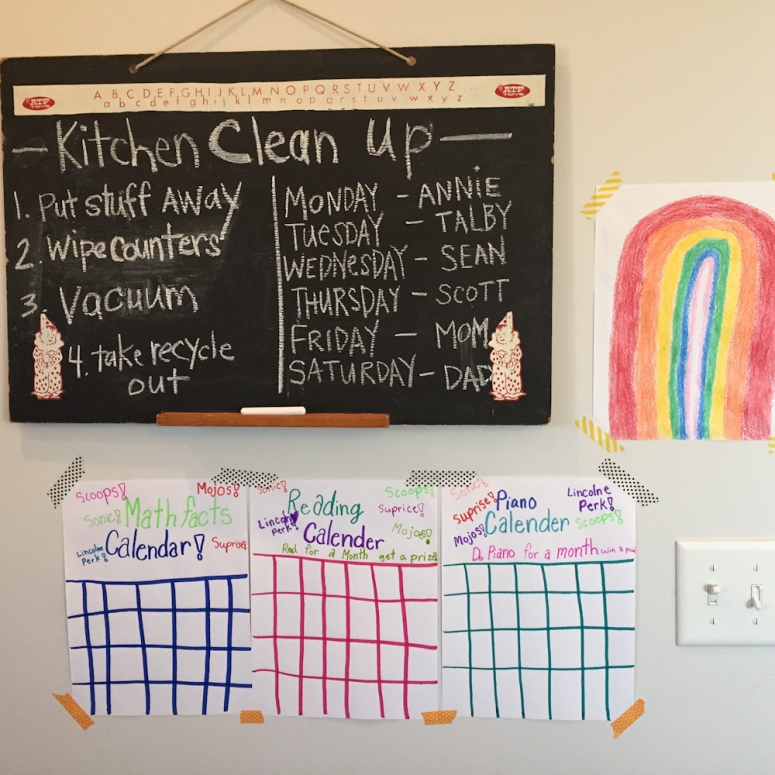 A B C D E F G H I J K L M N O P Q R S T U V W X Y Z
a b c d e f g h i j k l m n o p q r s t u v w x y z
- Kitchen Clean Up -
1. Put stuff AWAY
2. Wipe counters
3. Vacuum
4. take recycle
out
MONDAY - ANNiE
TUESDAY - TALBY
WEDNeSDAY - SEAN
THURSDAY - SCOTT
FRIDAY - MOM
SATURDAY - DAD
Scoops! Mojos!
Sonic! Math facts
Lincolne Perk! Calendar! Suprise!
Sonic! Reading Scoops!
Suprice!
Perk! Calender Mojos!
Red for a Month get a prize
Sonic! Piano Lincolne
Suprise! Perk!
Mojos! Calender Scoops!
Do Piano for a month win a